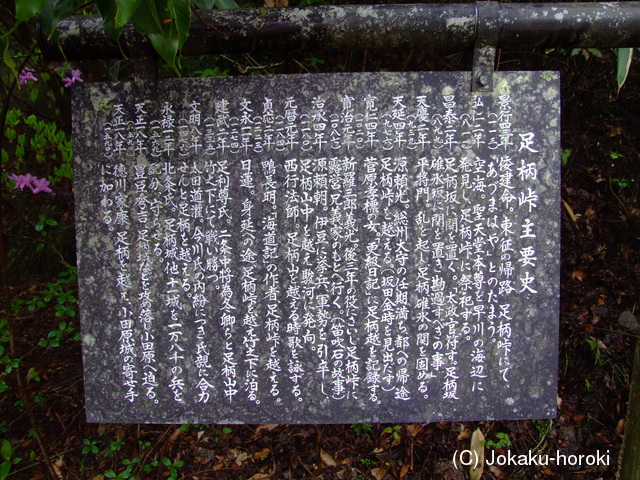 足柄峠主要史
景行四年 倭建命、東征の帰路、足柄峠にて、
"あづまはや"とのたまう。
弘仁二年 空海。聖天堂の本尊を早川の海辺に
(八一一) 発見し、足柄峠に祭祀する。
昌泰二年 足柄坂に関を置く。太政官符す「足柄坂
(八九九) 碓氷坂に関を置き、勘過すべきの事」
天慶二年 平将門、乱を起し足柄碓氷の関を固める。
天延四年 源頼光、総州太守の任期満ち都への帰途
(九七六) 足柄峠を越える。(坂田金時を見出だす)
寛仁四年 菅原孝標の女、更級日記に足柄越を記録する
寛治元年 新羅三郎義光、後三年の役にさいし足柄峠に
(一〇八七) 露営し兄義家のもとへ行く。(笛吹石の故事)
治承四年 源頼朝、伊豆に挙兵、軍勢を引卆し
足柄山中を越え駿河に発向。
元暦元年 西行法師。足柄山を越える時歌を詠する。
貞応二年 鴨長明、「海道記」の作者足柄峠を越える。
(一二二三)
文永十一年 日蓮、身延への途、足柄峠を越え竹之下に泊る。
(一二七四)
建武二年 足利尊氏、二条中将為冬卿らと足柄山中
竹之下に戦い勝つ。
文明八年 太田道灌、今川氏の内紛につき氏親に合力
せんと足柄を越える。
永禄十二年 北条氏。足柄城他十城を一万八千の兵を
(一五六九) 配分して守らせる。
天正十八年 豊臣秀吉、足柄城などを攻め落し小田原へ迫る。
天正十八年 徳川家康、足柄を越え、小田原城の寄せ手
(一五九〇) に加わる。
(C) Jokaku-horoki